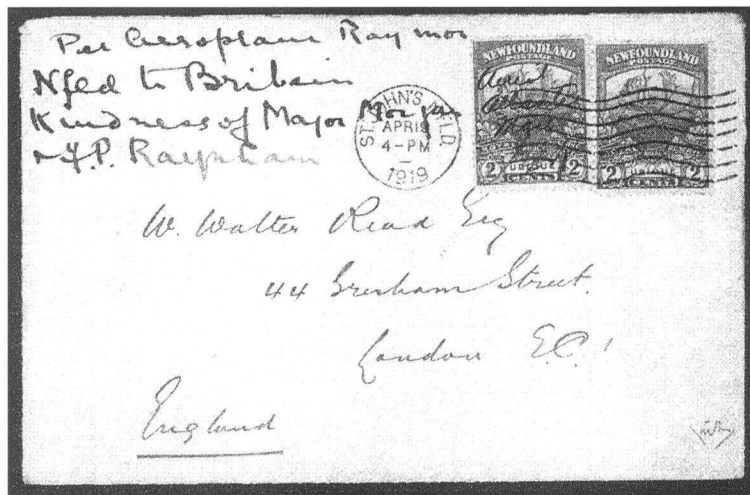 Per Aeroplane Raymor
Nfld to Britain
Kindness of Major Morgan
F.P. Raynham
ST. JOHN'S NFLD.
APR 19
4-PM
1919
NEWFOUNDLAND
POSTAGE
Aerial
Atlantic
Mail
2 2
CENTS
NEWFOUNDLAND
POSTAGE
2 2
CENTS
W. Walter Read Esq
44 Gresham Street.
London E.C.
England